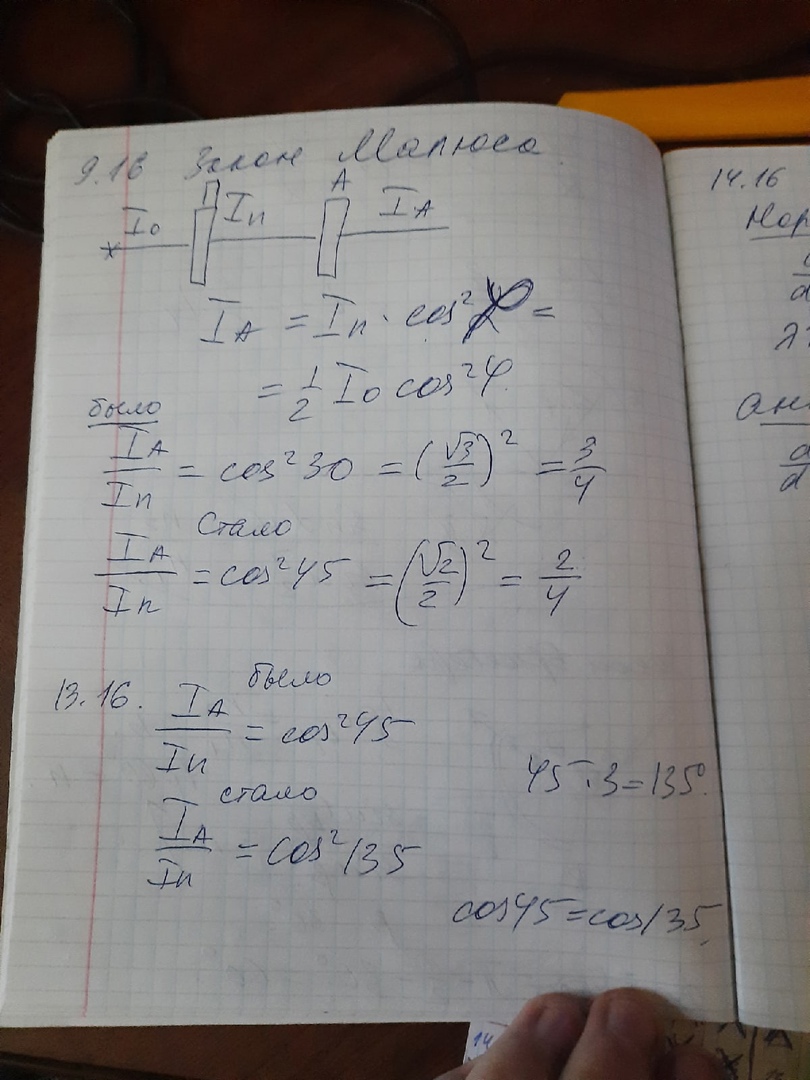 9.16 Закон Малюса
П A
I₀ Iп I_A
I_A = Iп · cos²φ =
= 1/2 I₀ cos²φ
было
I_A/Iп = cos²30 = (√3/2)² = 3/4
Стало
I_A/Iп = cos²45 = (√2/2)² = 2/4
13.16. было
I_A/Iп = cos²45
45·3=135°.
стало
I_A/Iп = cos²135
cos45=cos135.
14.16
Нор
d
λ
d
14